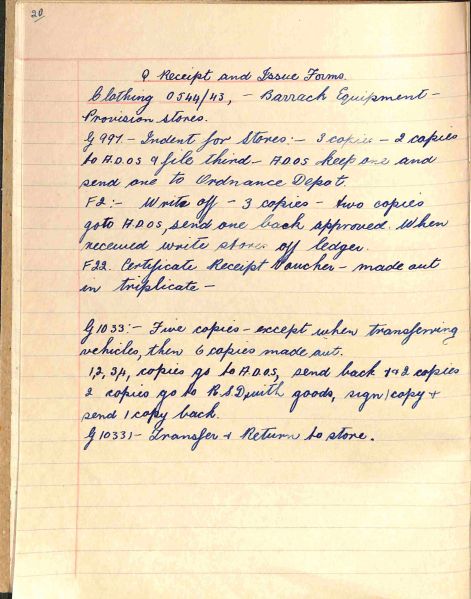 20
Q Receipt and Issue Forms.
Clothing 0544/43, - Barrack Equipment -
Provision stores.
G 997. - Indent for Stores: - 3 copies - 2 copies
to A.D.O.S & file third - A.D.O.S keep one and
send one to Ordnance Depot.
F2:- Write off - 3 copies - two copies
go to A.D.O.S, send one back approved. When
received write stores off ledger.
F22. Certificate Receipt Voucher - made out
in triplicate -
G1033:- Five copies - except when transferring
vehicles, then 6 copies made out.
1,2,3,4, copies go to A.D.O.S, send back 1 & 2 copies
2 copies go to R.S.D, with goods, sign 1 copy +
send 1 copy back.
G1033:- Transfer & Return to store.